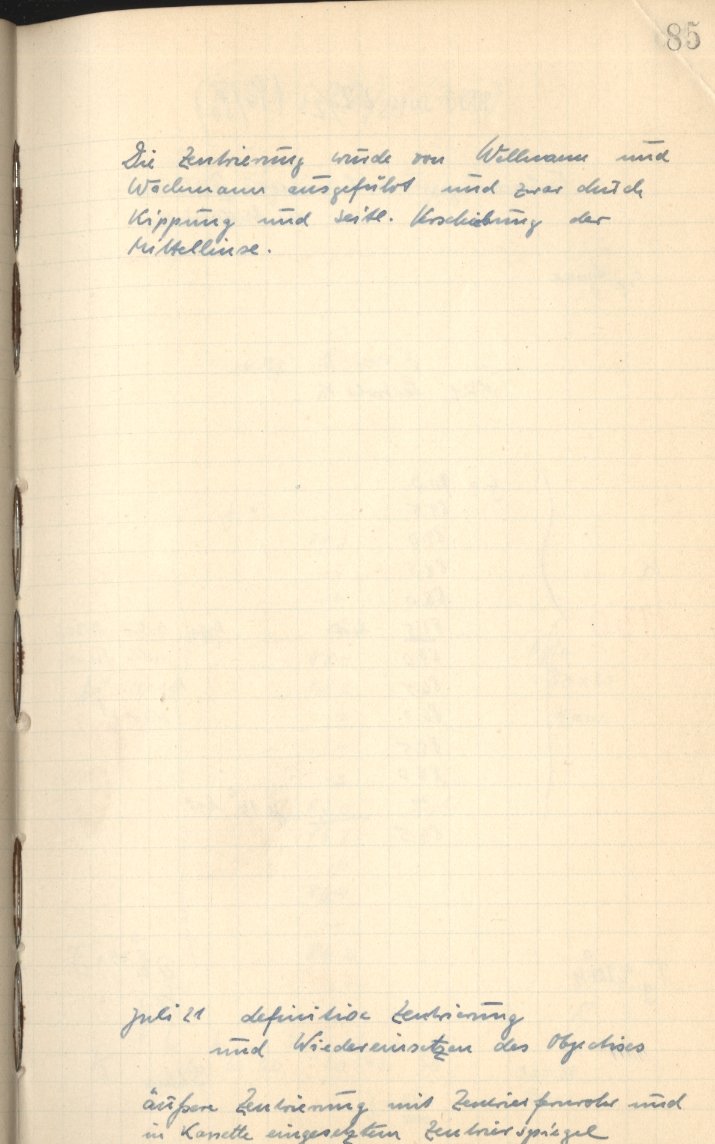 85
Die Zentrierung wurde von Wellmann und
Wachmann ausgeführt und zwar durch
Kippung und seitl. Verschiebung der
Mittellinse.
Juli 21 definitive Zentrierung
und Wiedereinsetzen des Objectives
äußere Zentrierung mit Zentrierfernrohr und
in Kassette eingesetztem Zentrierspiegel